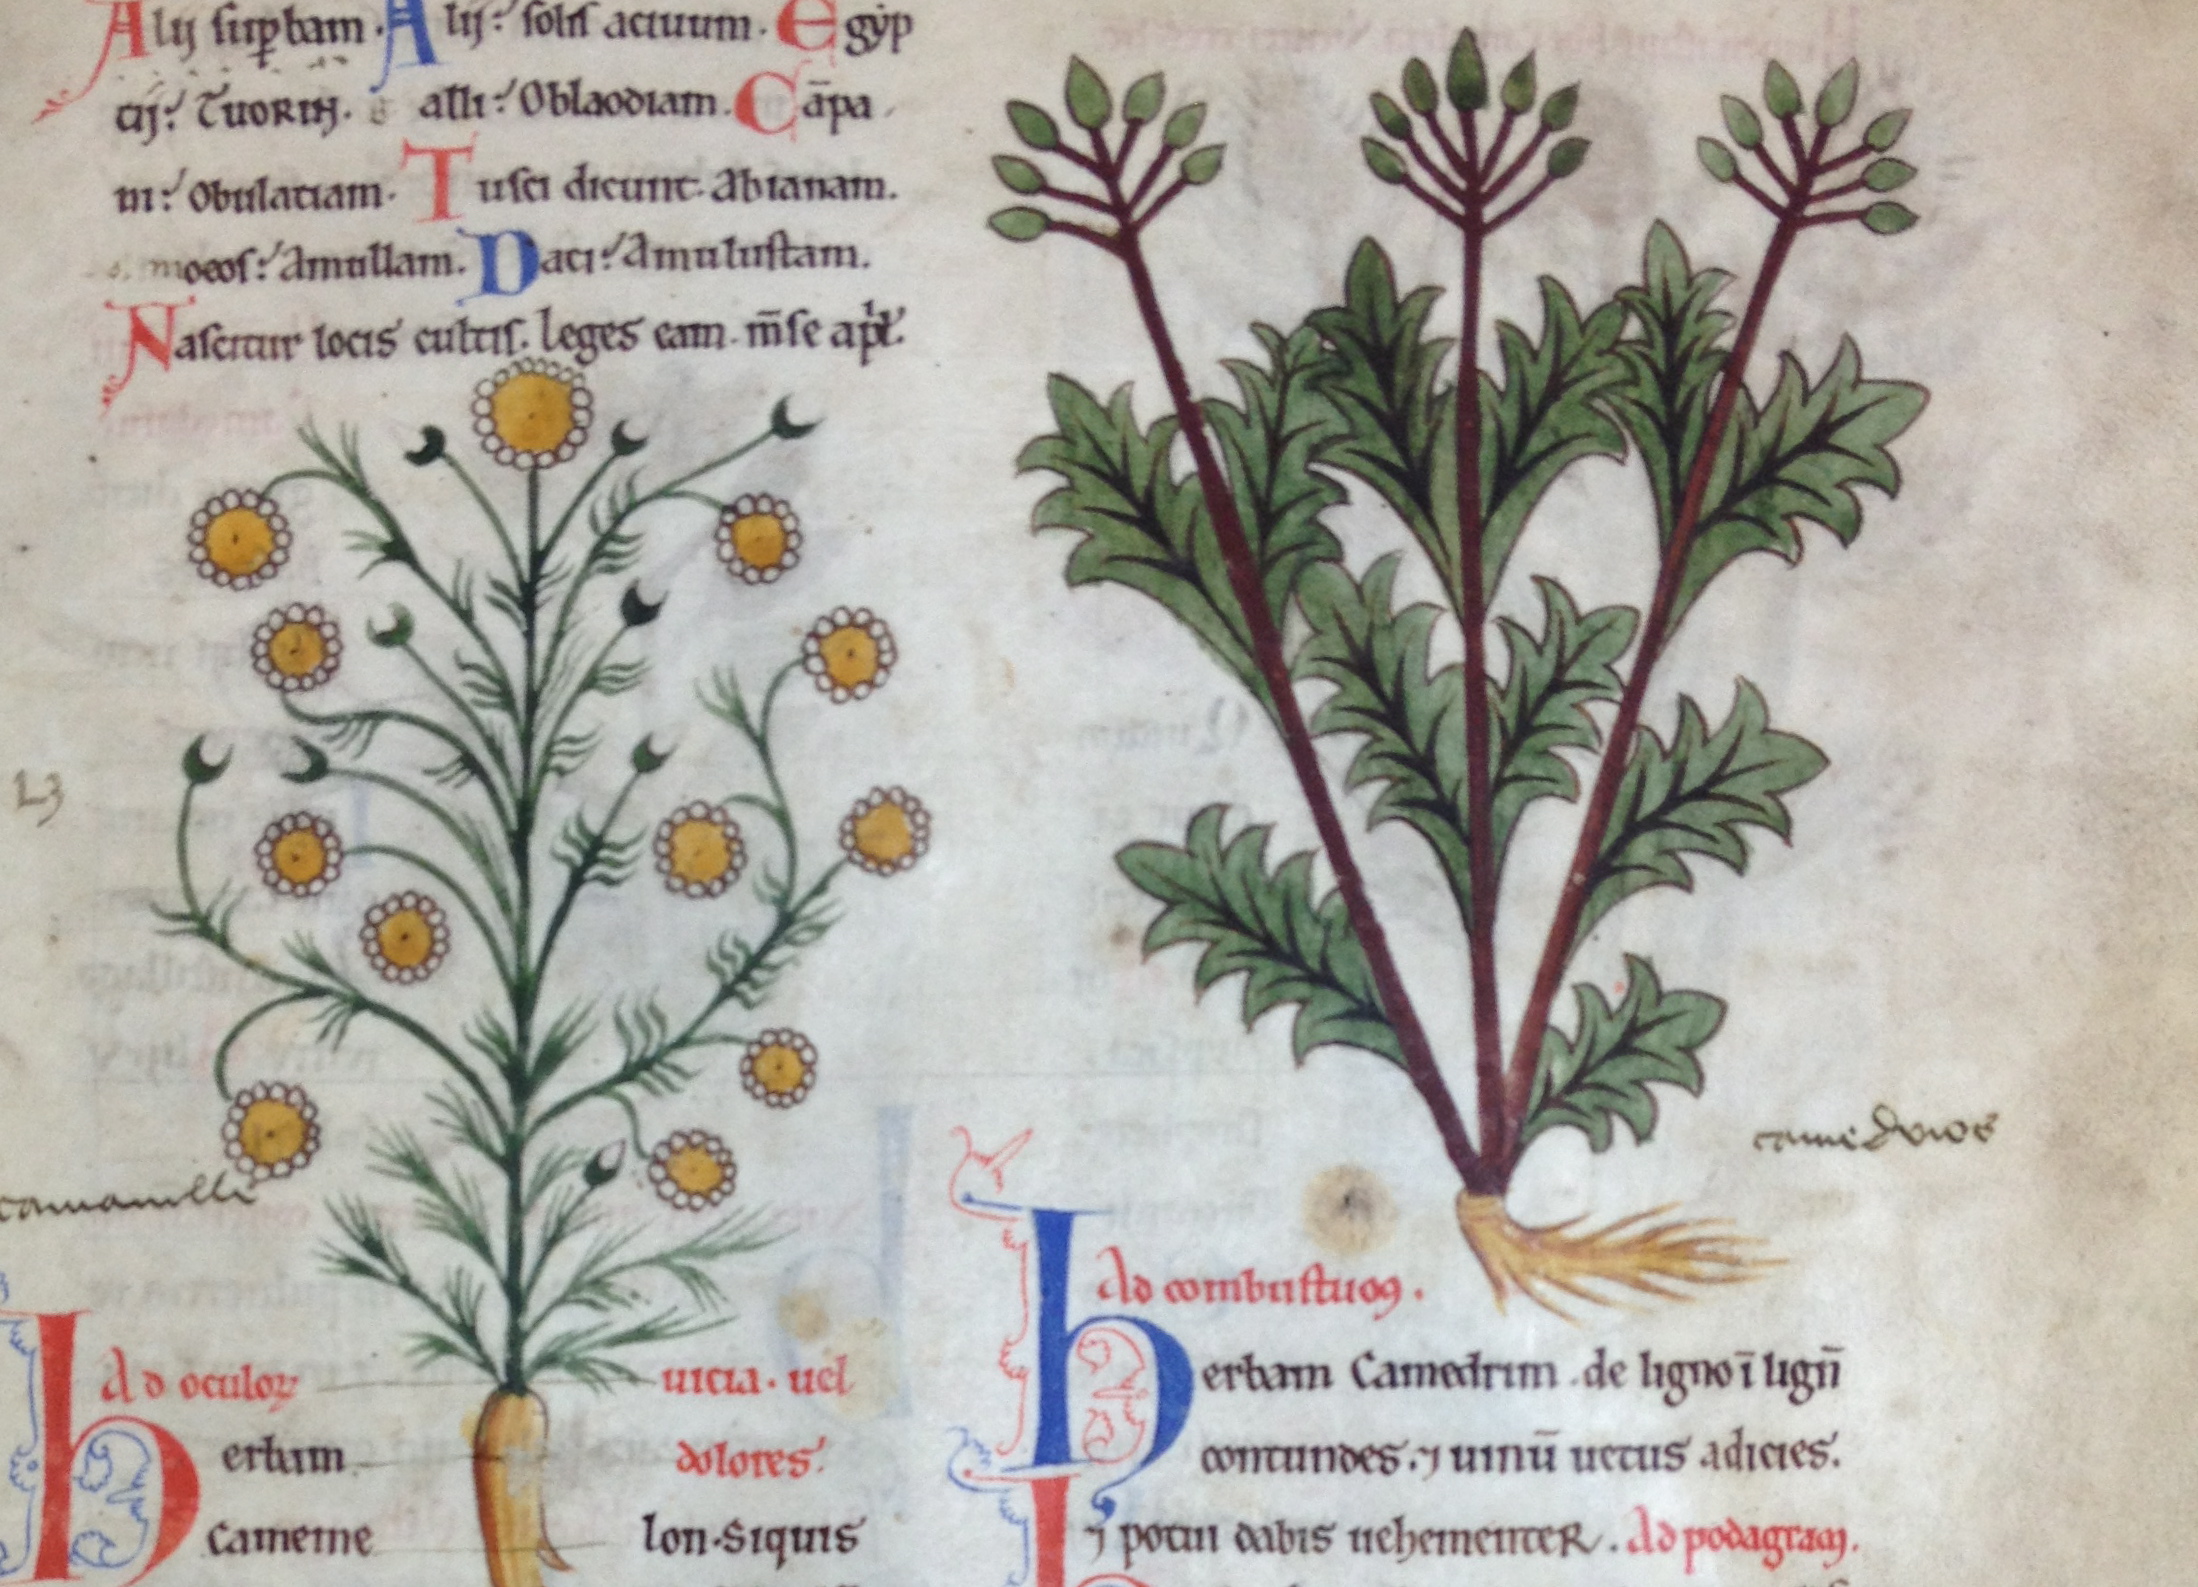 Alij supbam. Alij: solis actuum. Egyp
cij: Tuorin. alli: Oblaodiam. Cāpa
ni: Obulaciam. Tusci dicunt. Abianam.
Amullam. Daci: Amulustam.
Nascitur locis cultis. leges eam. m̄se apl.
camamilli
Ad oculoꝝ uicia. uel
herbam dolores.
Cameme lon. Siquis
camedrios
Ad combustuꝝ.
herbam Camedrim. de ligno ī lign̄
contundes. ⁊ uinū uetus adicies.
⁊ potui dabis uehementer. Ad podagram.